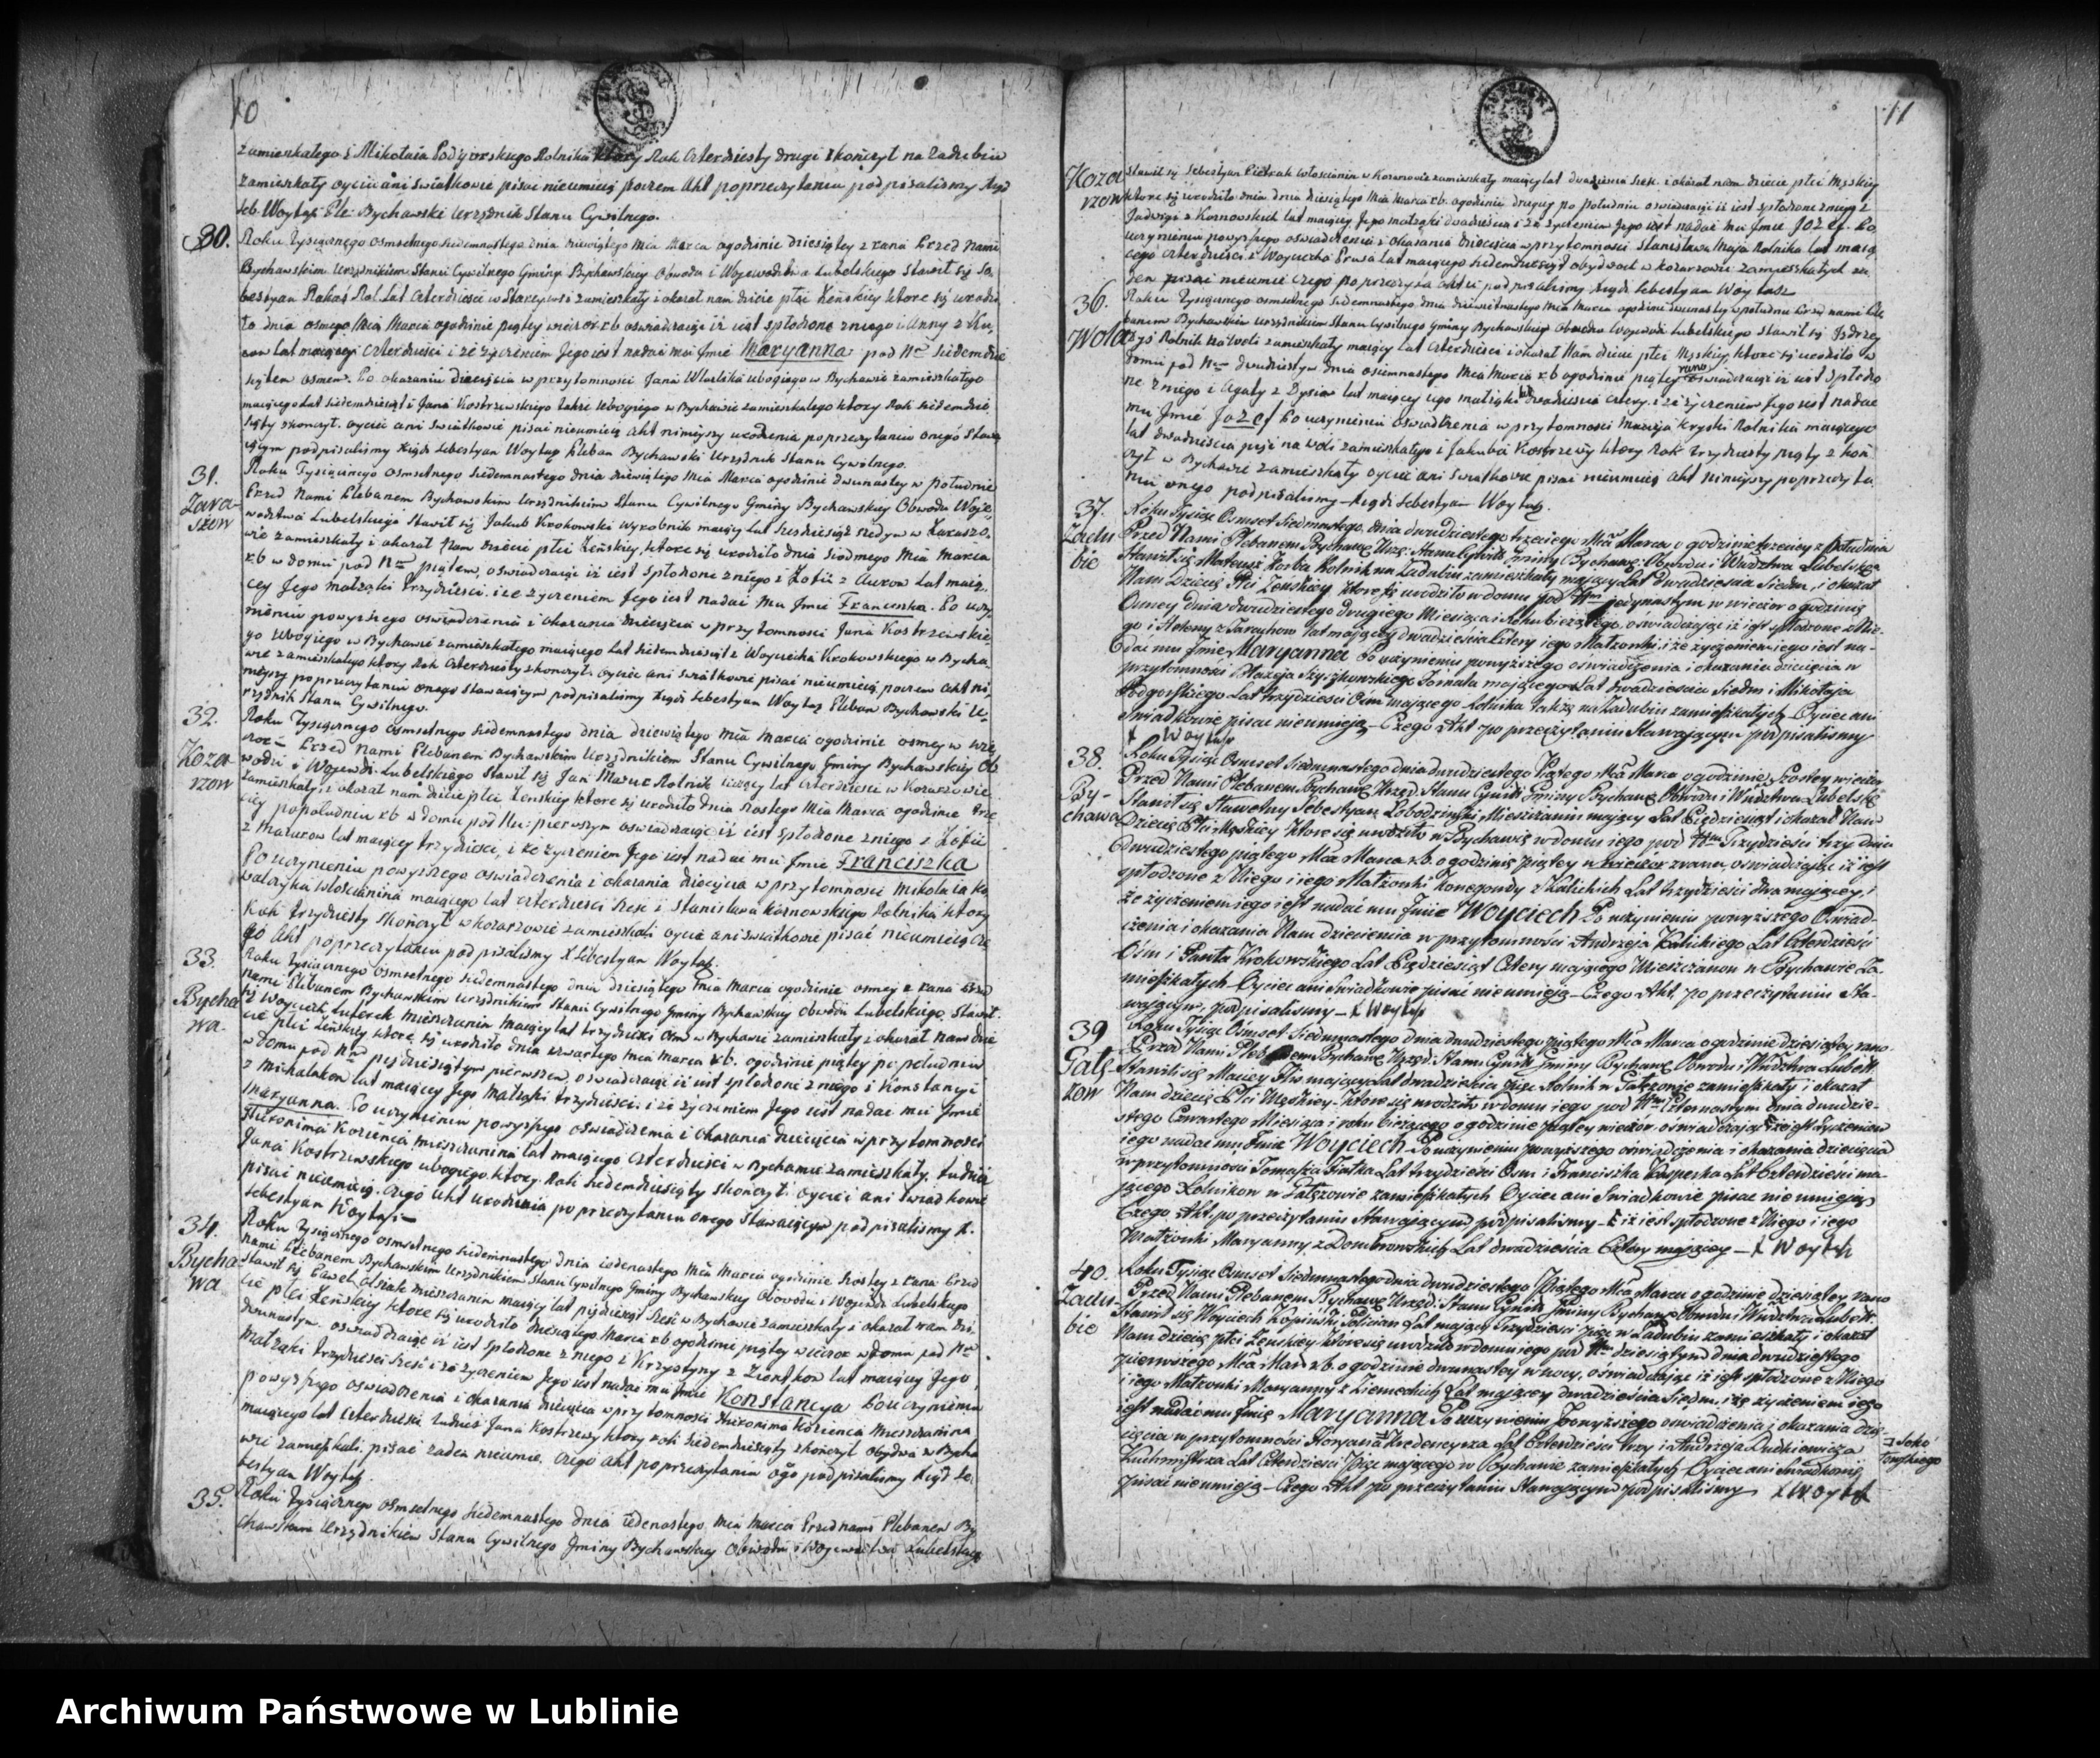 10
zamieszkałego i Mikołaia Podgorskiego Rolnika ktory Rok czterdziesty drugi skończył na Zadębiu
zamieszkały oyciec ani swiatkowie pisać nieumieią poczem Akt poprzeczytaniu podpisalismy Xiądz
Seb. Woytaß Ple: Bychawski Urzędnik Stanu Cywilnego.
30.
Roku Tysiącznego osmsetnego siedemnastego dnia dziewiątego Mca Marca ogodzinie dziesiątey z rana Przed Nami
Bychawskim Urzędnikiem Stanu Cywilnego Gminy Bychawskiey Obwodu i Wojewodztwa Lubelskiego stawił się Se
bestyan Rol: Lat czterdziesci w Starey wsi zamieszkały i okazał nam dziecie płci żeńskiey ktore się urodzi
ło dnia osmego Mca Marca ogodzinie piątey wieczor rb oswiadczaiąc iż iest spłodzone z niego i Anny z
lat maiącey czterdziesci i że życzeniem Jego iest nadać mu Jmie Maryanna: pod Nrem siedemdzie
siątem osmem. Po okazaniu dziecięcia w przytomnosci Jana ubogiego w Bychawie zamieszkałego
maiącego Lat siedemdziesiąt i Jana Kostrzewskiego także ubogiego w Bychawie zamieszkałego ktory Rok siedemdzie
siąty skonczył. oyciec ani swiatkowie pisać nieumieią akt ninieyszy urodzenia poprzeczytaniu onego stawa
iącym podpisalismy Xiądz Sebestyan Woytaß Pleban Bychawski Urzędnik Stanu Cywilnego.
31.
Zara-
szow
Roku Tysiącznego osmsetnego siedemnastego dnia dziewiątego Mca Marca ogodzinie dwunastey w południe
Przed Nami Plebanem Bychawskim Urzędnikiem Stanu Cywilnego Gminy Bychawskiey Obwodu Woje-
wodztwa Lubelskiego stawił się Jakub Krokowski wyrobnik maiący lat szesdziesiąt siedym w Zaraszo-
wie zamieszkały i okazał Nam dziecie płci żeńskiey, ktore się urodziło dnia siodmego Mca Marca
rb w domu pod Nrem piątem, oswiadczaiąc iż iest spłodzone z niego i Zofii z lat maią-
cey Jego małżąki trzydziesci. i że życzeniem Jego iest nadać mu Jmie Franciszka. Po uczy
nieniu powyższego oswiadczenia i okazania dziecięcia w przytomnosci Jana Kostrzewskie
go ubogiego w Bychawie zamieszkałego maiącego lat siedemdziesiąt i Woyciecha Krokowskiego w Bycha
wie zamieszkałego ktory Rok czterdziesty skonczył. oyciec ani swiatkowie pisać nieumieią, poczem akt ni
nieyszy poprzeczytaniu onego stawaiącym podpisalismy Xiądz Sebestyan Woytaß Pleban Bychawski U-
rzędnik Stanu Cywilnego.
32.
Koza-
rzow
Roku Tysiącznego osmsetnego siedemnastego dnia dziewiątego Mca Marca ogodzinie osmey w wie
czor Przed Nami Plebanem Bychawskim Urzędnikiem Stanu Cywilnego Gminy Bychawskiey Ob
wodu i Wojewdz: Lubelskiego stawił się Jan Mazur Rolnik liczący lat czterdziesci w Kozarzowie
zamieszkały, i okazał nam dziecie płci żenskiey ktore się urodziło dnia szostego Mca Marca ogodzinie trze
ciey popołudniu rb w domu pod Nu: pierwszym oswiadczaiąc iż iest spłodzone z niego i Zofii
z Mazurow lat maiącey trzydziesci, i że życzeniem Jego iest nadać mu Jmie Franciszka
Po uczynieniu powyższego oswiadczenia i okazania dziecięcia w przytomnosci Mikołaia Ko
walczyka włoscianina maiącego lat czterdziesci szesć i Stanisława Karnowskiego Rolnika ktory
Rok trzydziesty skończył w Kozarzowie zamieszkali oyciec ani swiatkowie pisać nieumieią cze
go akt poprzeczytaniu podpisalismy X Sebestyan Woytaß.
33.
Bycha
wa.
Roku Tysiącznego osmsetnego siedemnastego dnia dziesiątego Mca Marca ogodzinie osmey z rana Przed
nami Plebanem Bychawskim Urzędnikiem Stanu Cywilnego Gminy Bychawskiey Obwodu Lubelskiego stawił
się Woyciech Luterek mieszczanin maiący lat trzydziesci osm w Bychawie zamieszkały i okazał nam dzie
cie płci żeńskiey ktore się urodziło dnia czwartego Mca Marca rb. ogodzinie piątey po południu
w domu pod Nrem pięćdziesiątym pierwszem, oswiadczaiąc iż iest spłodzone z niego i Konstancyi
z Michalakow lat maiącey Jego małżąki trzydziesci. i że życzeniem Jego iest nadać mu Jmie
Maryanna. Po uczynieniu powyższego oswiadczenia i okazania dziecięcia w przytomnosci
Hieronima Kozienca mieszczanina lat maiącego czterdziesci w Bychawie zamieszkały, tudzież
Jana Kostrzewskiego ubogiego ktory Rok siedemdziesiąty skończył. oyciec ani swiadkowie
pisać nieumieią, czego akt urodzenia poprzeczytaniu onego stawaiącym podpisalismy X.
Sebestyan Woytaß.
34.
Bycha
wa
Roku Tysiącznego osmsetnego siedemnastego dnia iedenastego Mca Marca ogodzinie szostey z rana Przed
nami Plebanem Bychawskim Urzędnikiem Stanu Cywilnego Gminy Bychawskiey Obwodu i Wojewdz Lubelskiego
stawił się Paweł Olszak mieszczanin maiący lat pięćdziesiąt szesć w Bychawie zamieszkały i okazał nam dzi
cie płci żeńskiey ktore się urodziło dziesiątego Marca rb ogodzinie piątey wieczor w domu pod Nrem
dwunastym. oswiadczaiąc iż iest spłodzone z niego i Krzystyny z Ziontkow lat maiącey Jego
małżąki trzydziesci szesć i że życzeniem Jego iest nadać mu Jmie Konstancya Po uczynieniu
powyższego oswiadczenia i okazania dziecięcia w przytomnosci Hieronima Kozienca mieszczanina
maiącego lat czterdziesci tudzież Jana Kostrzewy ktory rok siedemdziesiąty skończył obydwa w Bycha
wie zamieszkali. pisać żaden nieumie. czego akt poprzeczytaniu ogo podpisalismy Xiądz Se-
bestyan Woytaß.
35.
Roku Tysiącznego osmsetnego siedemnastego dnia iedenastego Mca Marca Przed nami Plebanem By
chawskim Urzędnikiem Stanu Cywilnego Gminy Bychawskiey Obwodu i Wojewodztwa Lubelskiego
11
Koza
rzow
stawił się Sebestyan Pietrak włoscianin w Kozarzowie zamieszkały maiący lat dwadziescia szesć. i okazał nam dziecie płci Męskiey
ktore się urodziło dnia dnia dziesiątego Mca Marca rb. ogodzinie drugiey po południu oswiadczaiąc iż iest spłodzone z niego i
Jadwigi z Karnowskich lat maiącey Jego małżąki dwadziescia i że życzeniem Jego iest nadać mu Jmie Józef. Po
uczynieniu powyższego oswiadczenia i okazania dziecięcia w przytomnosci Stanisława Maja Rolnika lat maią
cego czterdziesci i Woyciecha Prusa lat maiącego siedemdziesiąt obydwoch w Kozarzowie zamieszkałych ża
den pisać nieumie czego poprzeczytaniu aktu podpisalismy Xiądz Sebestyan Woytasz
36.
Wola
Roku Tysiącznego osmsetnego siedemnastego dnia dziewietnastego Mca Marca ogodzinie dwunastey w południe Przed nami Ple
banem Bychawskim Urzędnikiem Stanu Cywilnego Gminy Bychawskiey Obwodu Wojewodz Lubelskiego stawił się Jędrzey
Rolnik na Woli zamieszkały maiący lat czterdziesci i okazał Nam dziecie płci Męskiey, ktore się urodziło w
domu pod Nrem dwudziestym dnia osiemnastego Mca Marca rb ogodzinie piątey rano oswiadczaiąc iż iest spłodzo
ne z niego i Agaty z Dysiow lat maiącey iego małżąki lat dwadziescia cztery. i że życzeniem Jego iest nadać
mu Jmie Józef Po uczynieniu oswiadczenia w przytomnosci Macieja Kryski Rolnika maiącego
lat dwadziescia pięć na Woli zamieszkałego i Jakuba Kostrzewy ktory Rok trzydziesty piąty skoń
czył w Bychawie zamieszkały oyciec ani swiatkowie pisać nieumieią akt ninieyszy poprzeczyta
niu onego podpisalismy Xiądz Sebestyan Woytaß.
37.
Zadę
bie
Roku Tysiąc Osmset Siedmnastego, dnia dwudziestego trzeciego Mca Marca, o godzinie trzeciey z południa
Przed Nami Plebanem Bychawę: Urzę: Stanu Cywiln: Gminy Bychawę: Obwodu i Wdztwa Lubelskgo
Stawił się Mateusz Rolnik na Zadębiu zamieszkały maiący Lat dwadzieścia Siedm, i okazał
Nam Dziecię Płci Żeńskiey, ktore się urodziło w domu pod Nrem jedynastym w wieczor o godzinie
Osmey dnia dwudziestego drugiego Miesiąca i Roku bieżącego, oświadczając iż iest spłodzone z Nie-
go i Heleny z lat maiącey dwadzieścia cztery iego Małżonki i że życzeniem iego iest na-
dać mu Jmie Maryanna Po uczynieniu ponyższego oświadczenia i okazaniu dziecięcia w
przytomności Błażeja Szyszkowskiego Fornala maiącego Lat dwadzieścia Siedm i Mikołaja
Podgorskiego Lat trzydzieści Ośm maiącego Rolnika także na Zadębiu zamieszkałych Oyciec ani
Świadkowie pisać nieumieią Czego Akt po przeczytaniu Stawającym podpisaliśmy
X Woytaß
38.
By-
chawa
Roku Tysiąc Osmset Siedmnastego dnia dwudziestego Piątego Mca Marca o godzinie Szostey wieczor
Przed Nami Plebanem Bychawę Urzęd: Stanu Cywiln Gminy Bychawę Obwodu i Wdztwa Lubelskgo
Stawił się Sławetny Sebestyan Łobodziński Mieszczanin maiący Lat Pięćdziesiąt i okazał Nam
Dziecię Płci Męskiey ktore się urodziło w Bychawie w domu iego pod Nrem Trzydzieści trzy dnia
dwudziestego piątego Mca Marca r.b. o godzinie piątey w wieczor zrana, oświadczając iż iest
spłodzone z Niego i iego Małżonki Konegundy z Kalickich Lat trzydzieści dwa maiącey, i
że życzeniem iego iest nadać mu Jmie Woyciech Po uczynieniu ponyższego Oświad-
czenia i okazania Nam dziecięcia w przytomności Andrzeja Kalickiego Lat Czterdzieści
Ośm i Pawła Krokowskiego Lat Pięćdziesiąt Cztery maiącego Mieszczanow w Bychawie Za-
mieszkałych Oyciec ani Świadkowie pisać nieumieią Czego Akt po przeczytaniu Sta-
wającym, podpisaliśmy X Woytaß
39
Gałę-
zow
Roku Tysiąc Osmset Siedmnastego dnia dwudziestego piątego Mca Marca o godzinie dziesiątey rano
Przed Nami Plebanem Bychawę Urzęd: Stanu Cywiln Gminy Bychawę Obwodu i Wdztwa Lubelk:
Stawił się Maciey maiący Lat dwadzieścia pięć Rolnik w Gałęzowie zamieszkały i okazał
Nam dziecię Płci Męskiey ktore się urodziło w domu iego pod Nrem Czternastym dnia dwudzie-
stego Czwartego Miesiąca i roku bieżącego o godzinie piątey wieczor, oświadczając że iest życzeniem
iego nadać mu Jmie Woyciech Po uczynieniu ponyższego oświadczenia i okazania dziecięcia
w przytomności Tomasza Lat trzydzieści Osm i Franciszka Kasperka Lat Czterdzieści ma-
jącego Rolnikow w Gałęzowie zamieszkałych Oyciec ani Świadkowie pisać nieumieją
Czego Akt po przeczytaniu Stawającym podpisaliśmy i iż iest spłodzone z Niego i iego
Małżonki Maryanny z Dombrowskich Lat dwadzieścia Cztery maiącey X Woytaß
40.
Zadę-
bie
Roku Tysiąc Osmset Siedmnastego dnia dwudziestego Piątego Mca Marca o godzinie dziesiątey rano
Przed Nami Plebanem Bychawę Urzęd: Stanu Cywiln Gminy Bychawę Obwodu i Wdztwa Lubelk:
Stawił się Woyciech Kopiński Polician Lat maiący Trzydzieści pięć w Zadębiu zamieszkały i okazał
Nam dziecię płci Żenskiey ktore się urodziło w domu iego pod Nrem dziesiątym dnia dwudziestego
pierwszego Mca Mar: r.b. o godzinie dwunastey w nocy, oświadczając iż iest spłodzone z Niego
i iego Małżonki Maryanny z Ziemeckich Lat maiącey dwadzieścia Siedm, i że życzeniem iego
iest nadać mu Jmie Maryanna Po uczynieniu Ponyższego oświadczenia i okazania dzie-
cięcia w przytomności Floryana Kredencyrza Lat Czterdzieści trzy i Andrzeja Dudkiewicza
Kuchmistrza Lat Czterdzieści Pięć maiącego w Bychawie zamieszkałych Oyciec ani Świadkowie
pisać nieumieją Czego Akt po przeczytaniu Stawającym podpisaliśmy X Woytaß
Archiwum Państwowe w Lublinie